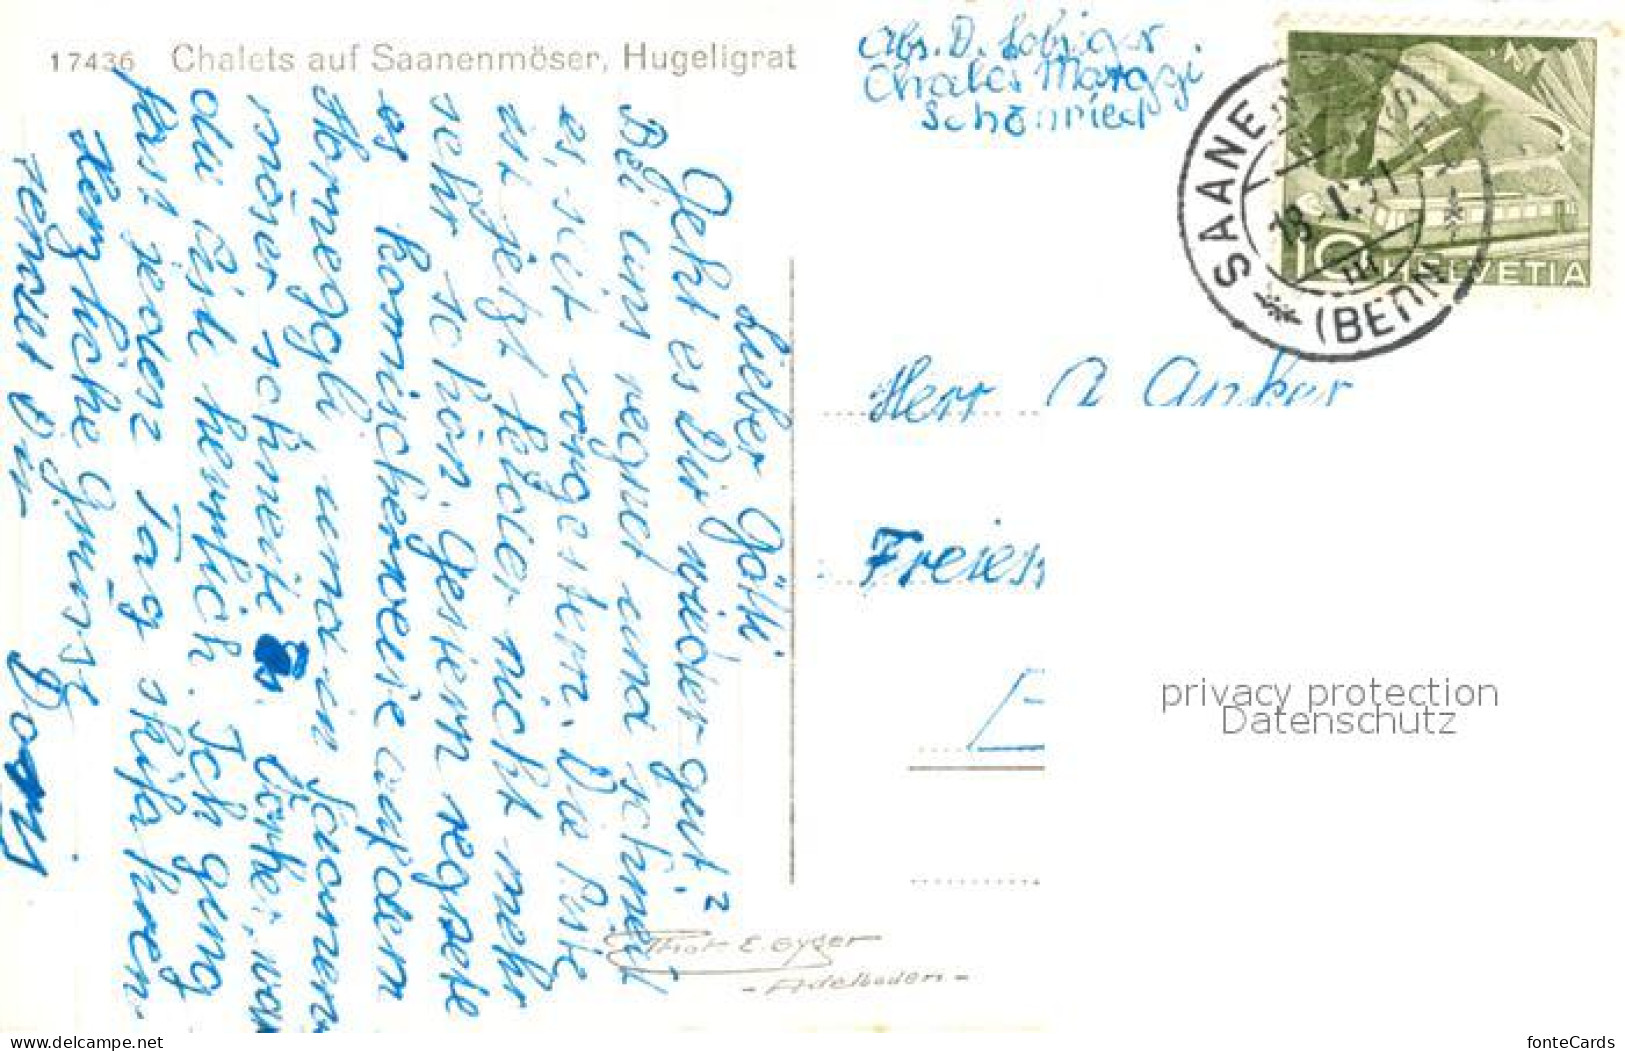 17436 Chalets auf Saanenmöser, Hugeligrat
Abs. D. Lobsiger
Chalet Marggi
Schönried
SAANEN
18. I. 51
(BERN)
10 HELVETIA
Lieber Götti,
Geht es Dir wieder gut?
Bei uns regnet und schneit
es, seit vorgestern. Die Piste
ist jetzt leider nicht mehr
sehr schön. Gestern regnete
es komischerweise auf dem
Horneggli und in Saanen-
möser schneite es. Vorher war
die Piste herrlich. Ich ging
fast jeden Tag skifahren.
Herzliche Grüsse
sendet Dir Dorny
Herr Anker
Freies
Phot E. Gyger
- Adelboden -
privacy protection
Datenschutz
www.delcampe.net
fonteCards